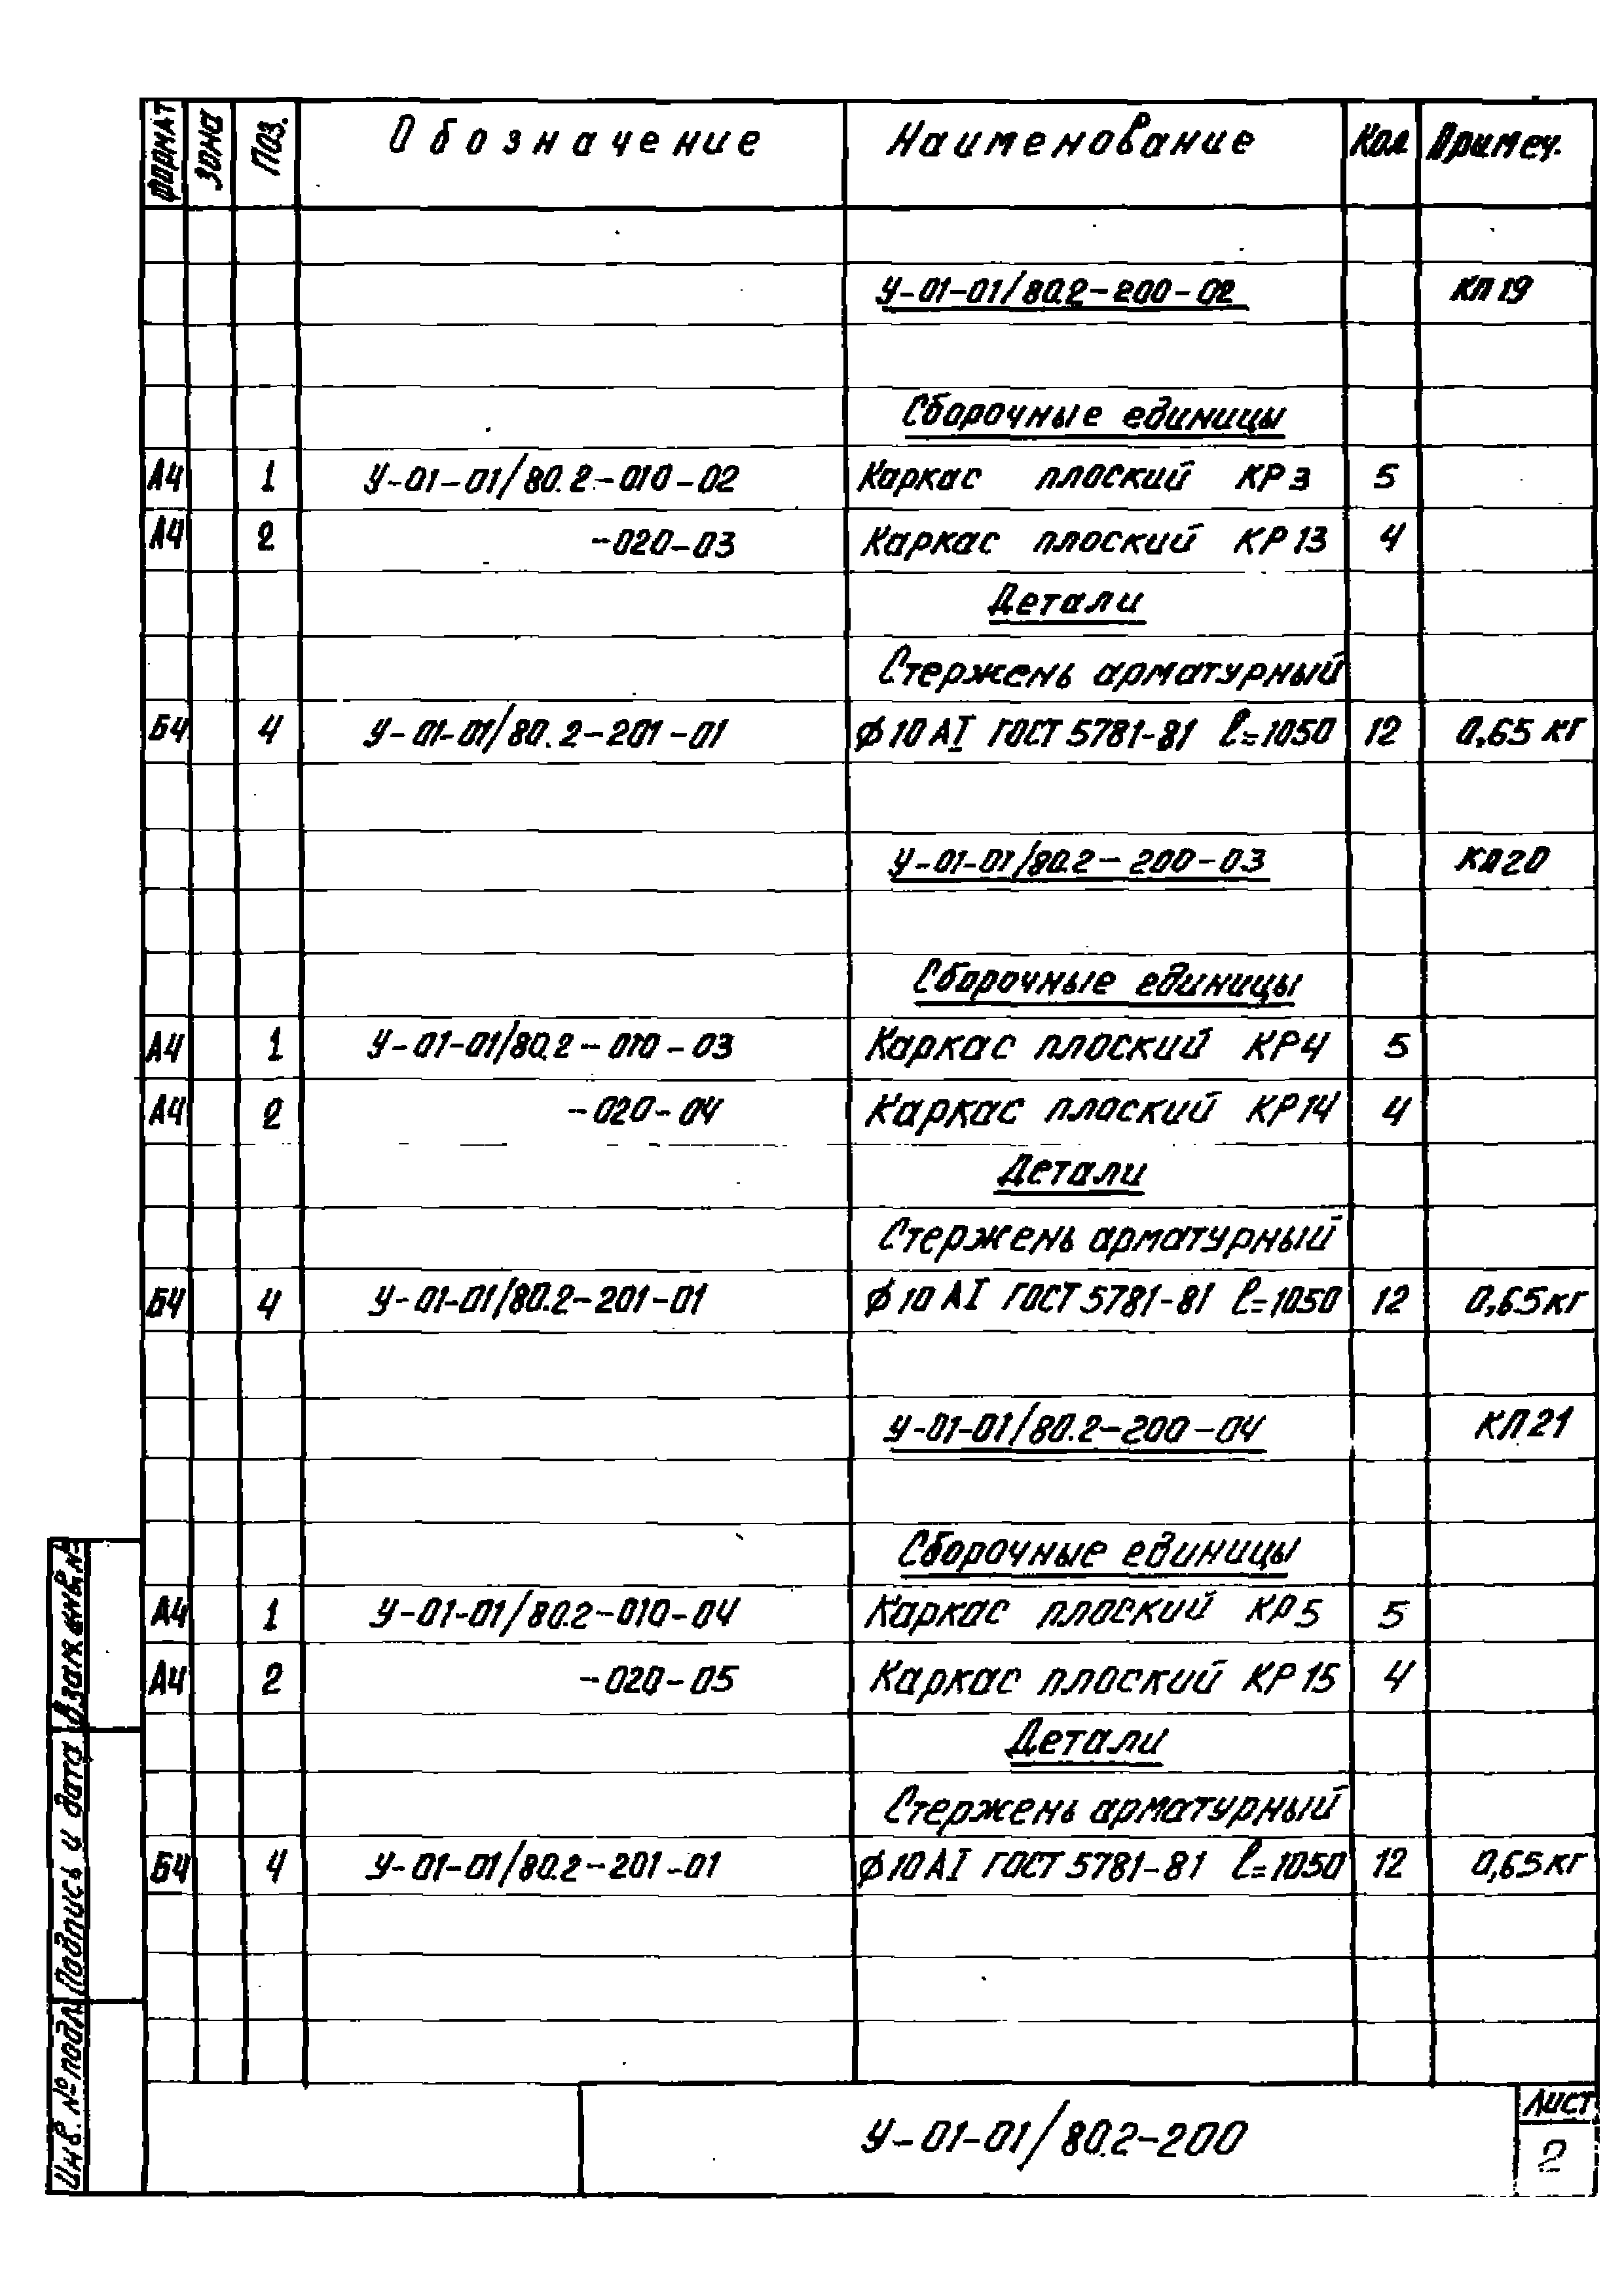 Формат Зона Поз. Обозначение Наименование Кол Примеч.
У-01-01/80.2-200-02 КП19
Сборочные единицы
А4 1 У-01-01/80.2-010-02 Каркас плоский КР3 5
А4 2 -020-03 Каркас плоский КР13 4
Детали
Стержень арматурный
Б4 4 У-01-01/80.2-201-01 ϕ10АI ГОСТ 5781-81 ℓ=1050 12 0,65 кг
У-01-01/80.2-200-03 КП20
Сборочные единицы
А4 1 У-01-01/80.2-010-03 Каркас плоский КР4 5
А4 2 -020-04 Каркас плоский КР14 4
Детали
Стержень арматурный
Б4 4 У-01-01/80.2-201-01 ϕ10АI ГОСТ 5781-81 ℓ=1050 12 0,65кг
У-01-01/80.2-200-04 КП21
Сборочные единицы
А4 1 У-01-01/80.2-010-04 Каркас плоский КР5 5
А4 2 -020-05 Каркас плоский КР15 4
Детали
Стержень арматурный
Б4 4 У-01-01/80.2-201-01 ϕ10АI ГОСТ 5781-81 ℓ=1050 12 0,65кг
Взам. инв. №
Подпись и дата
Инв. № подл.
У-01-01/80.2-200
Лист
2